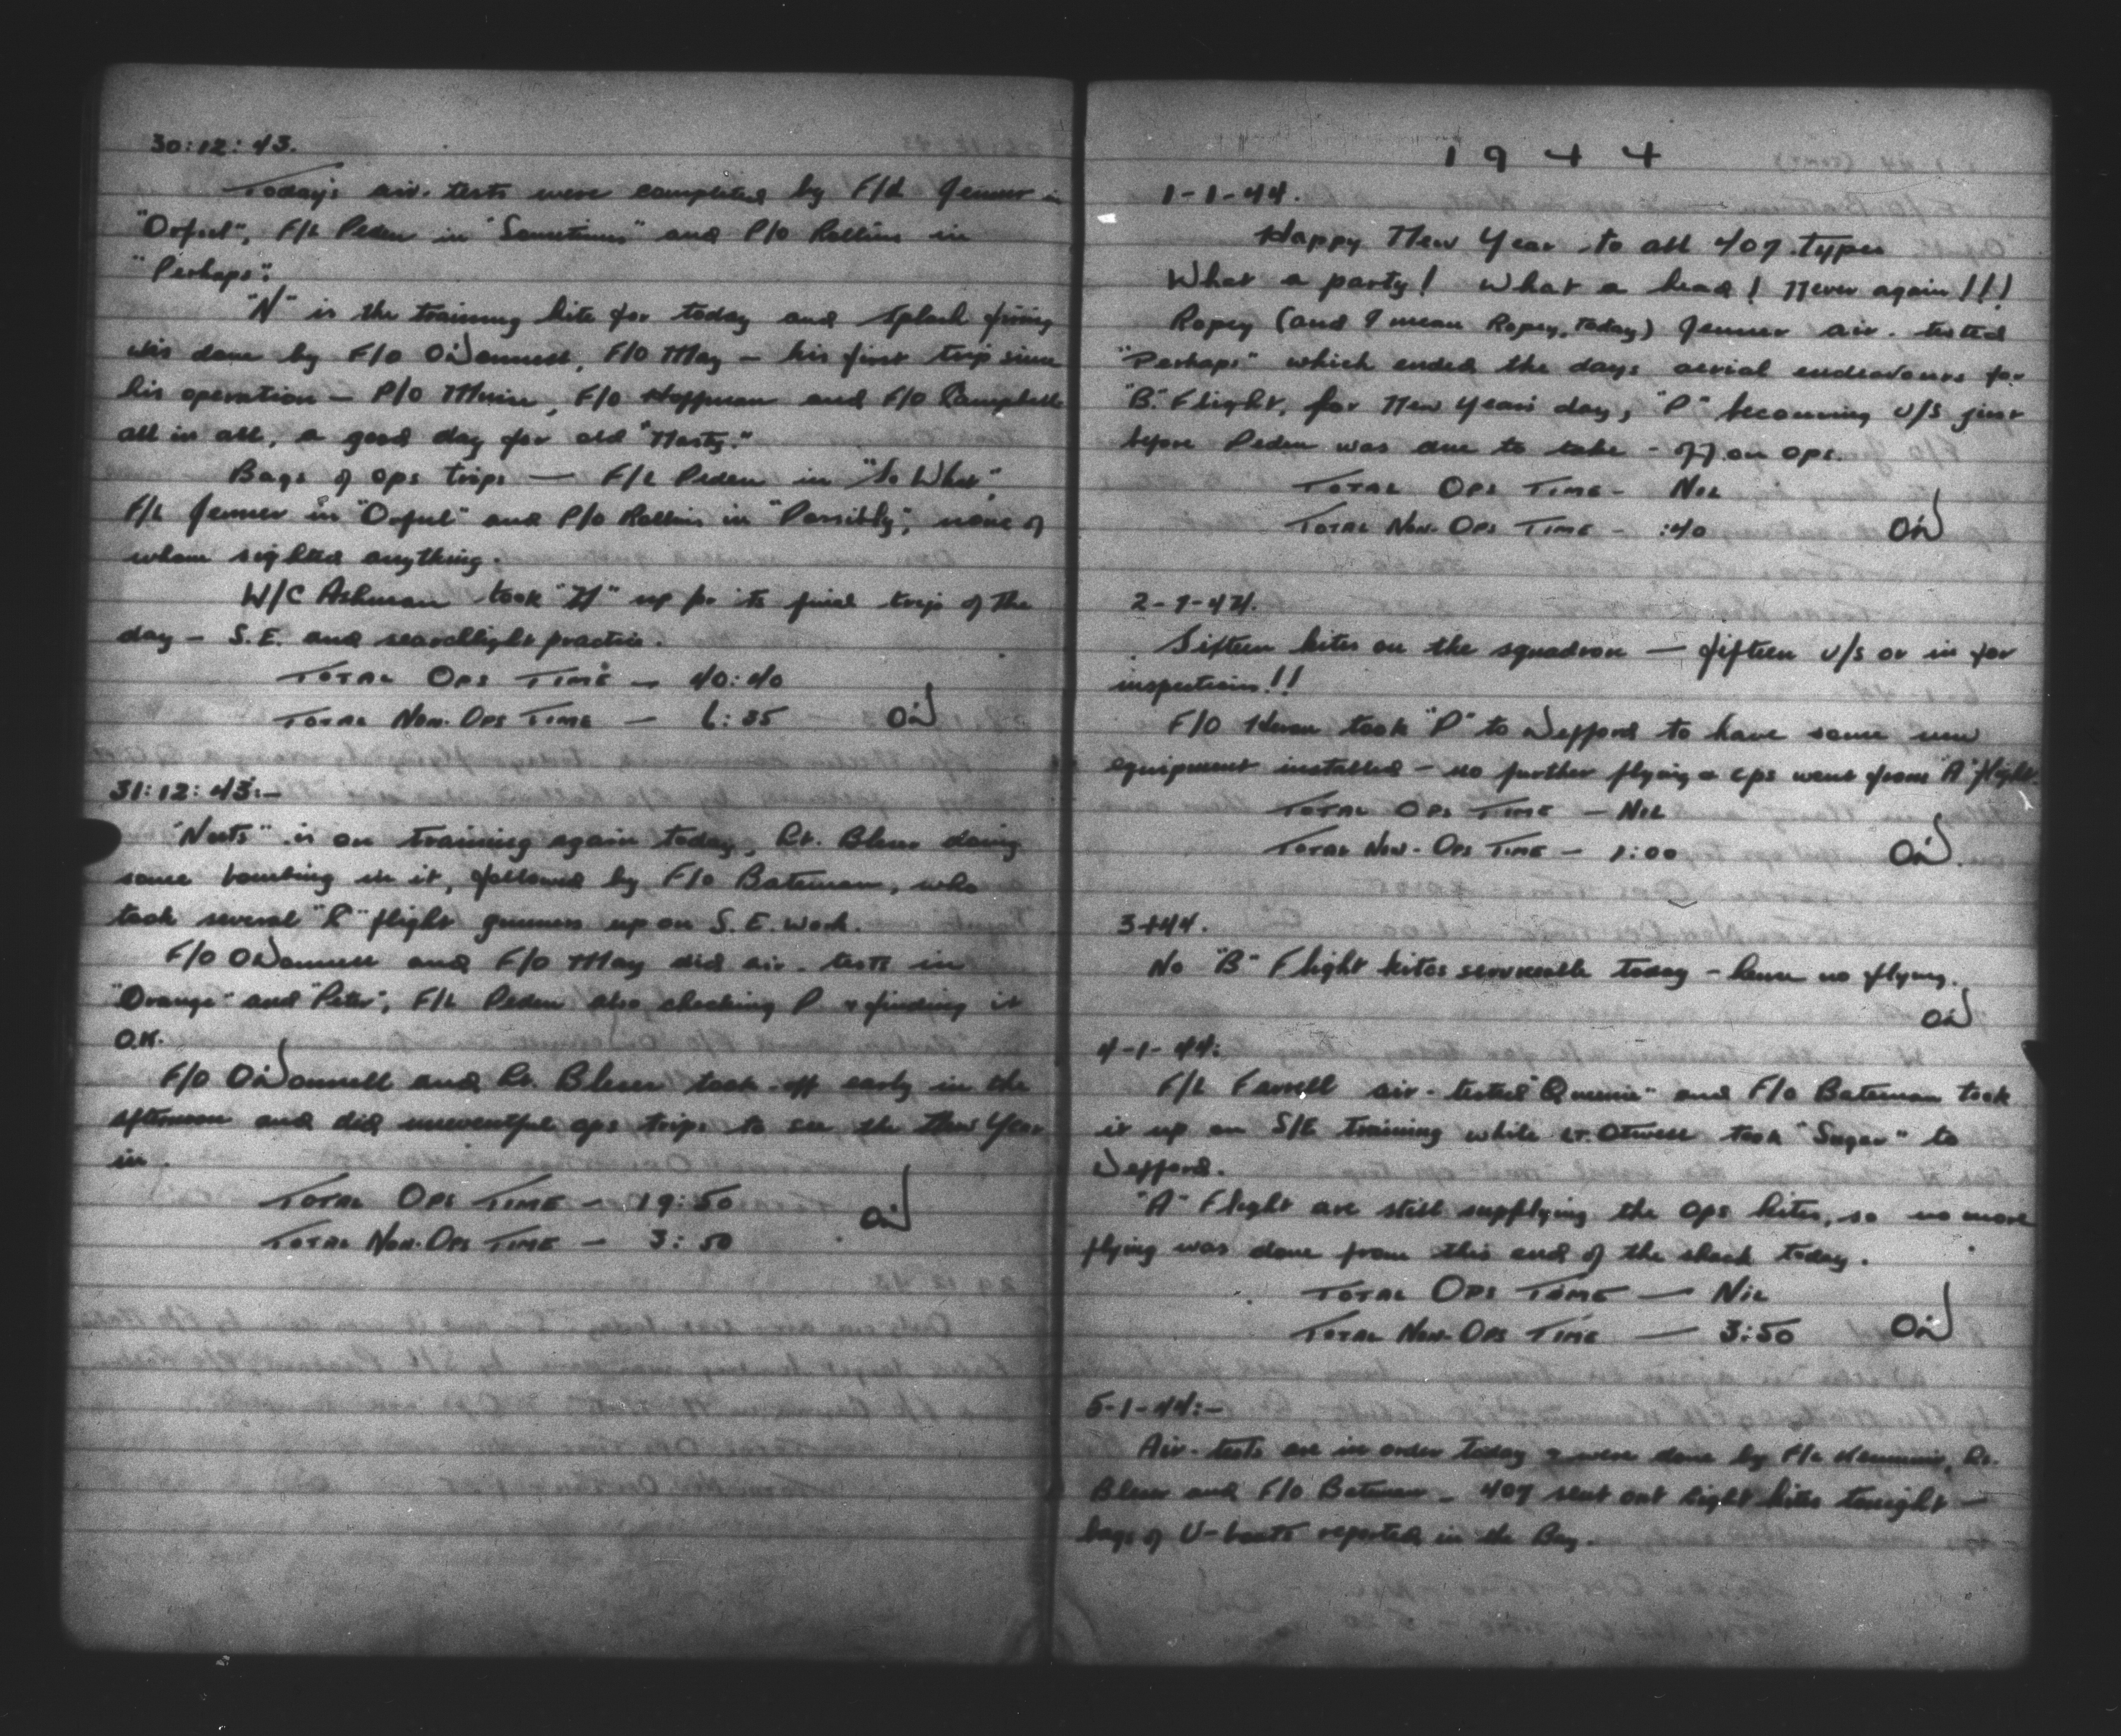 30:12:43.
Today's air-tests were completed by F/L Jenner in
"Orful", F/L Peden in "Sometimes" and P/O Rollins in
"Perhaps".
"N" is the training kite for today and splash firing
was done by F/O O'Donnell, F/O May — his first trip since
his operation — P/O , F/O Hoffman and F/O Campbell
all in all, a good day for old "Nasty."
Bags of ops trips — F/L Peden in "So What",
F/L Jenner in "Orful" and P/O Rollins in "Possibly", none of
whom sighted anything.
W/C Ashman took up for its final trip of the
day — S.E. and searchlight practice.
Total Ops Time — 40:40
Total Non-Ops Time — 6:35 O'D
31:12:43:—
"Nuts" is on training again today, Lt. Bleser doing
some bombing in it, followed by F/O Bateman, who
took several flight gunners up on S.E. work.
F/O O'Donnell and F/O May did air-tests in
"Orange" and "Peter", F/L Peden also checking P & finding it
O.K.
F/O O'Donnell and Lt. Bleser took-off early in the
afternoon and did uneventful ops trips to see the New Year
in.
Total Ops Time — 19:50
Total Non-Ops Time — 3:50 O'D
1944
1-1-44.
Happy New Year to all 407 types
What a party! What a head! Never again!!!
Ropey (and I mean Ropey, today) Jenner air-tested
"Perhaps" which ended the days aerial endeavours for
"B" Flight, for New Years day, "P" becoming U/S just
before Peden was due to take-off on ops.
Total Ops Time — Nil
Total Non-Ops Time — :40 O'D
2-1-44.
Sixteen kites on the squadron — fifteen U/S or in for
inspections!!
F/O took "P" to Defford to have some new
equipment installed — no further flying & ops went from "A" flight.
Total Ops Time — Nil
Total Non-Ops Time — 1:00 O'D.
3-1-44.
No "B" Flight kites serviceable today — hence no flying.
O'D
4-1-44:
F/L Farrell air-tested "Queenie" and F/O Bateman took
it up on S/E training while Lt. Otwell took "Sugar" to
Defford.
"A" Flight are still supplying the Ops kites, so no more
flying was done from this end of the shack today.
Total Ops Time — Nil
Total Non-Ops Time — 3:50 O'D
5-1-44:—
Air-tests are in order today & were done by F/L , Lt.
Bleser and F/O Bateman. 407 sent out eight kites tonight —
bags of U-boats reported in the Bay.